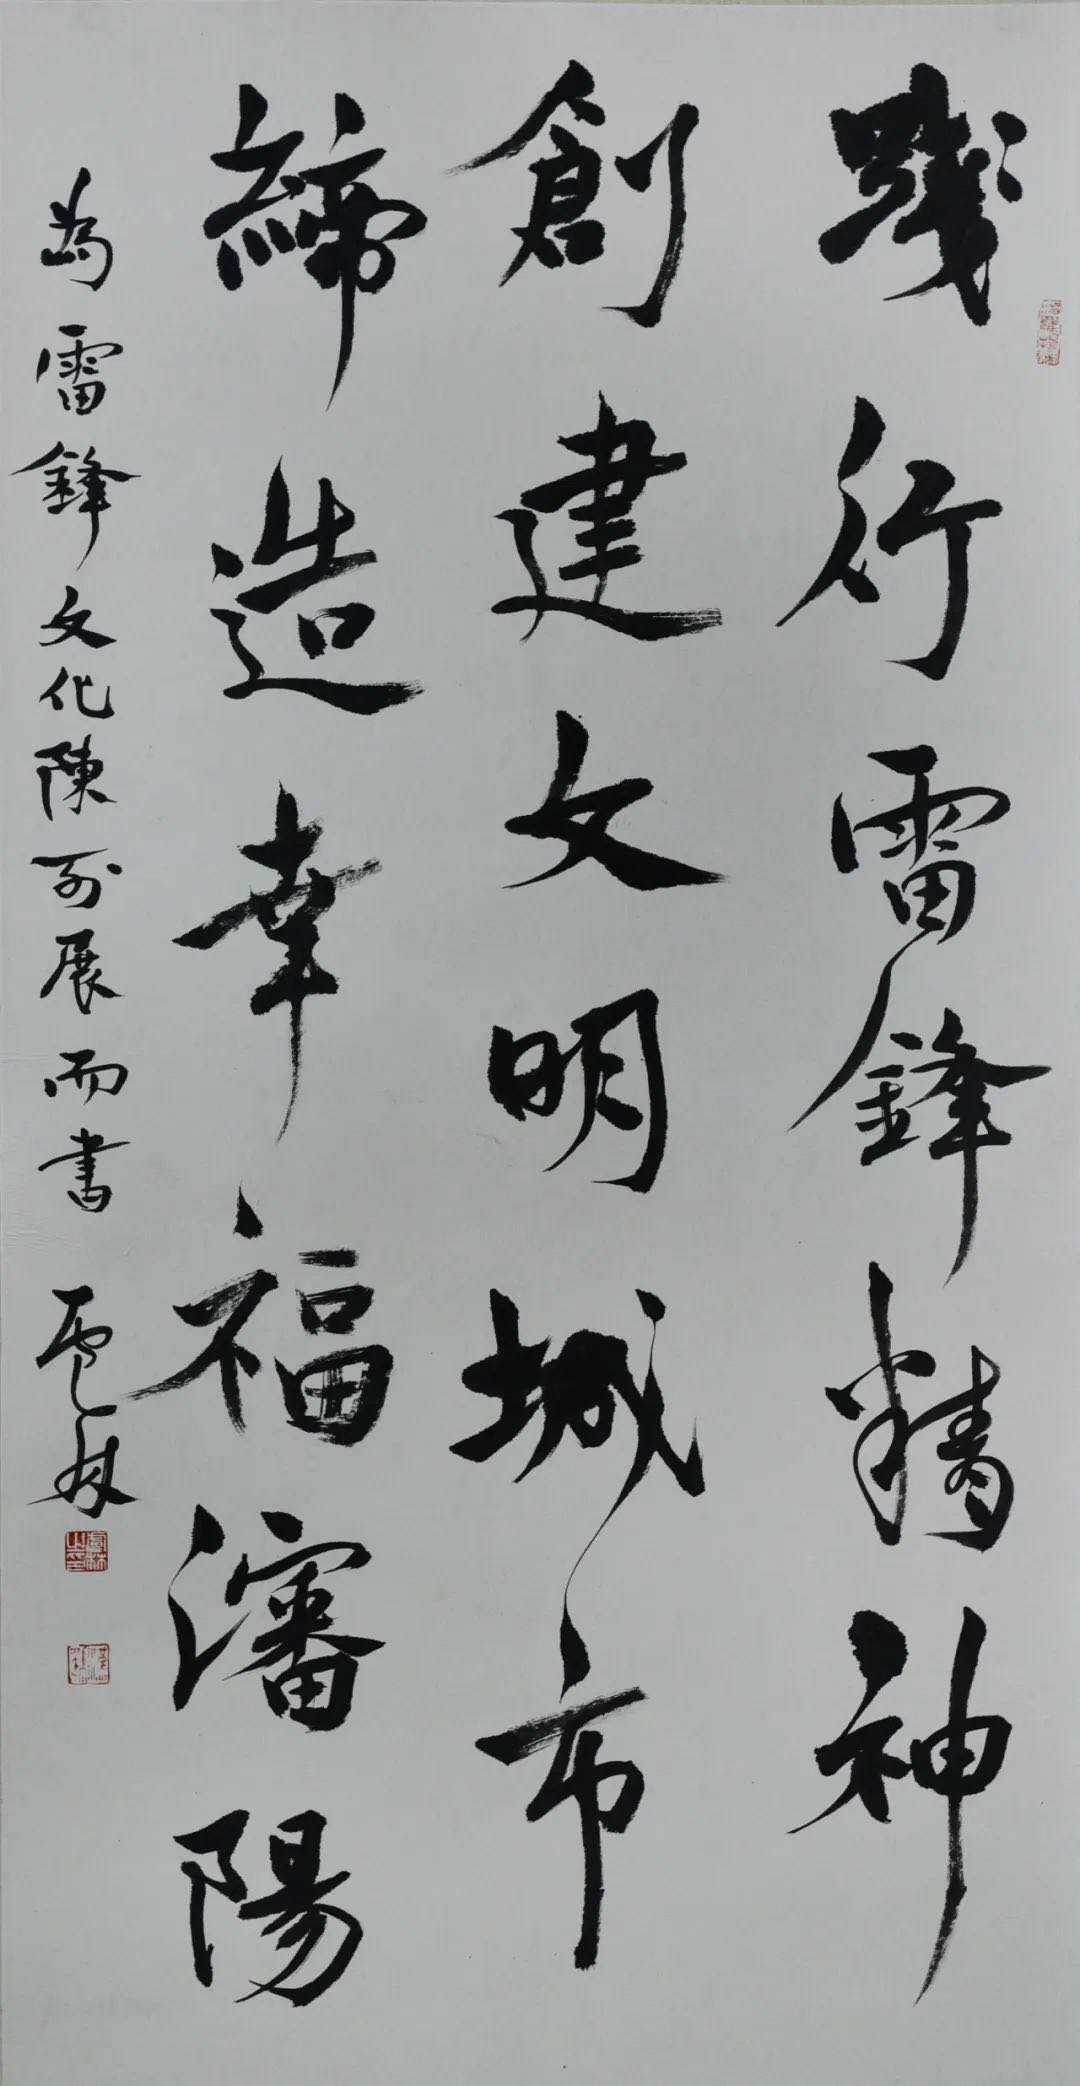 踐行雷鋒精神
創建文明城市
締造幸福瀋陽
為雷鋒文化陳列展而書 盧林
盧林之印